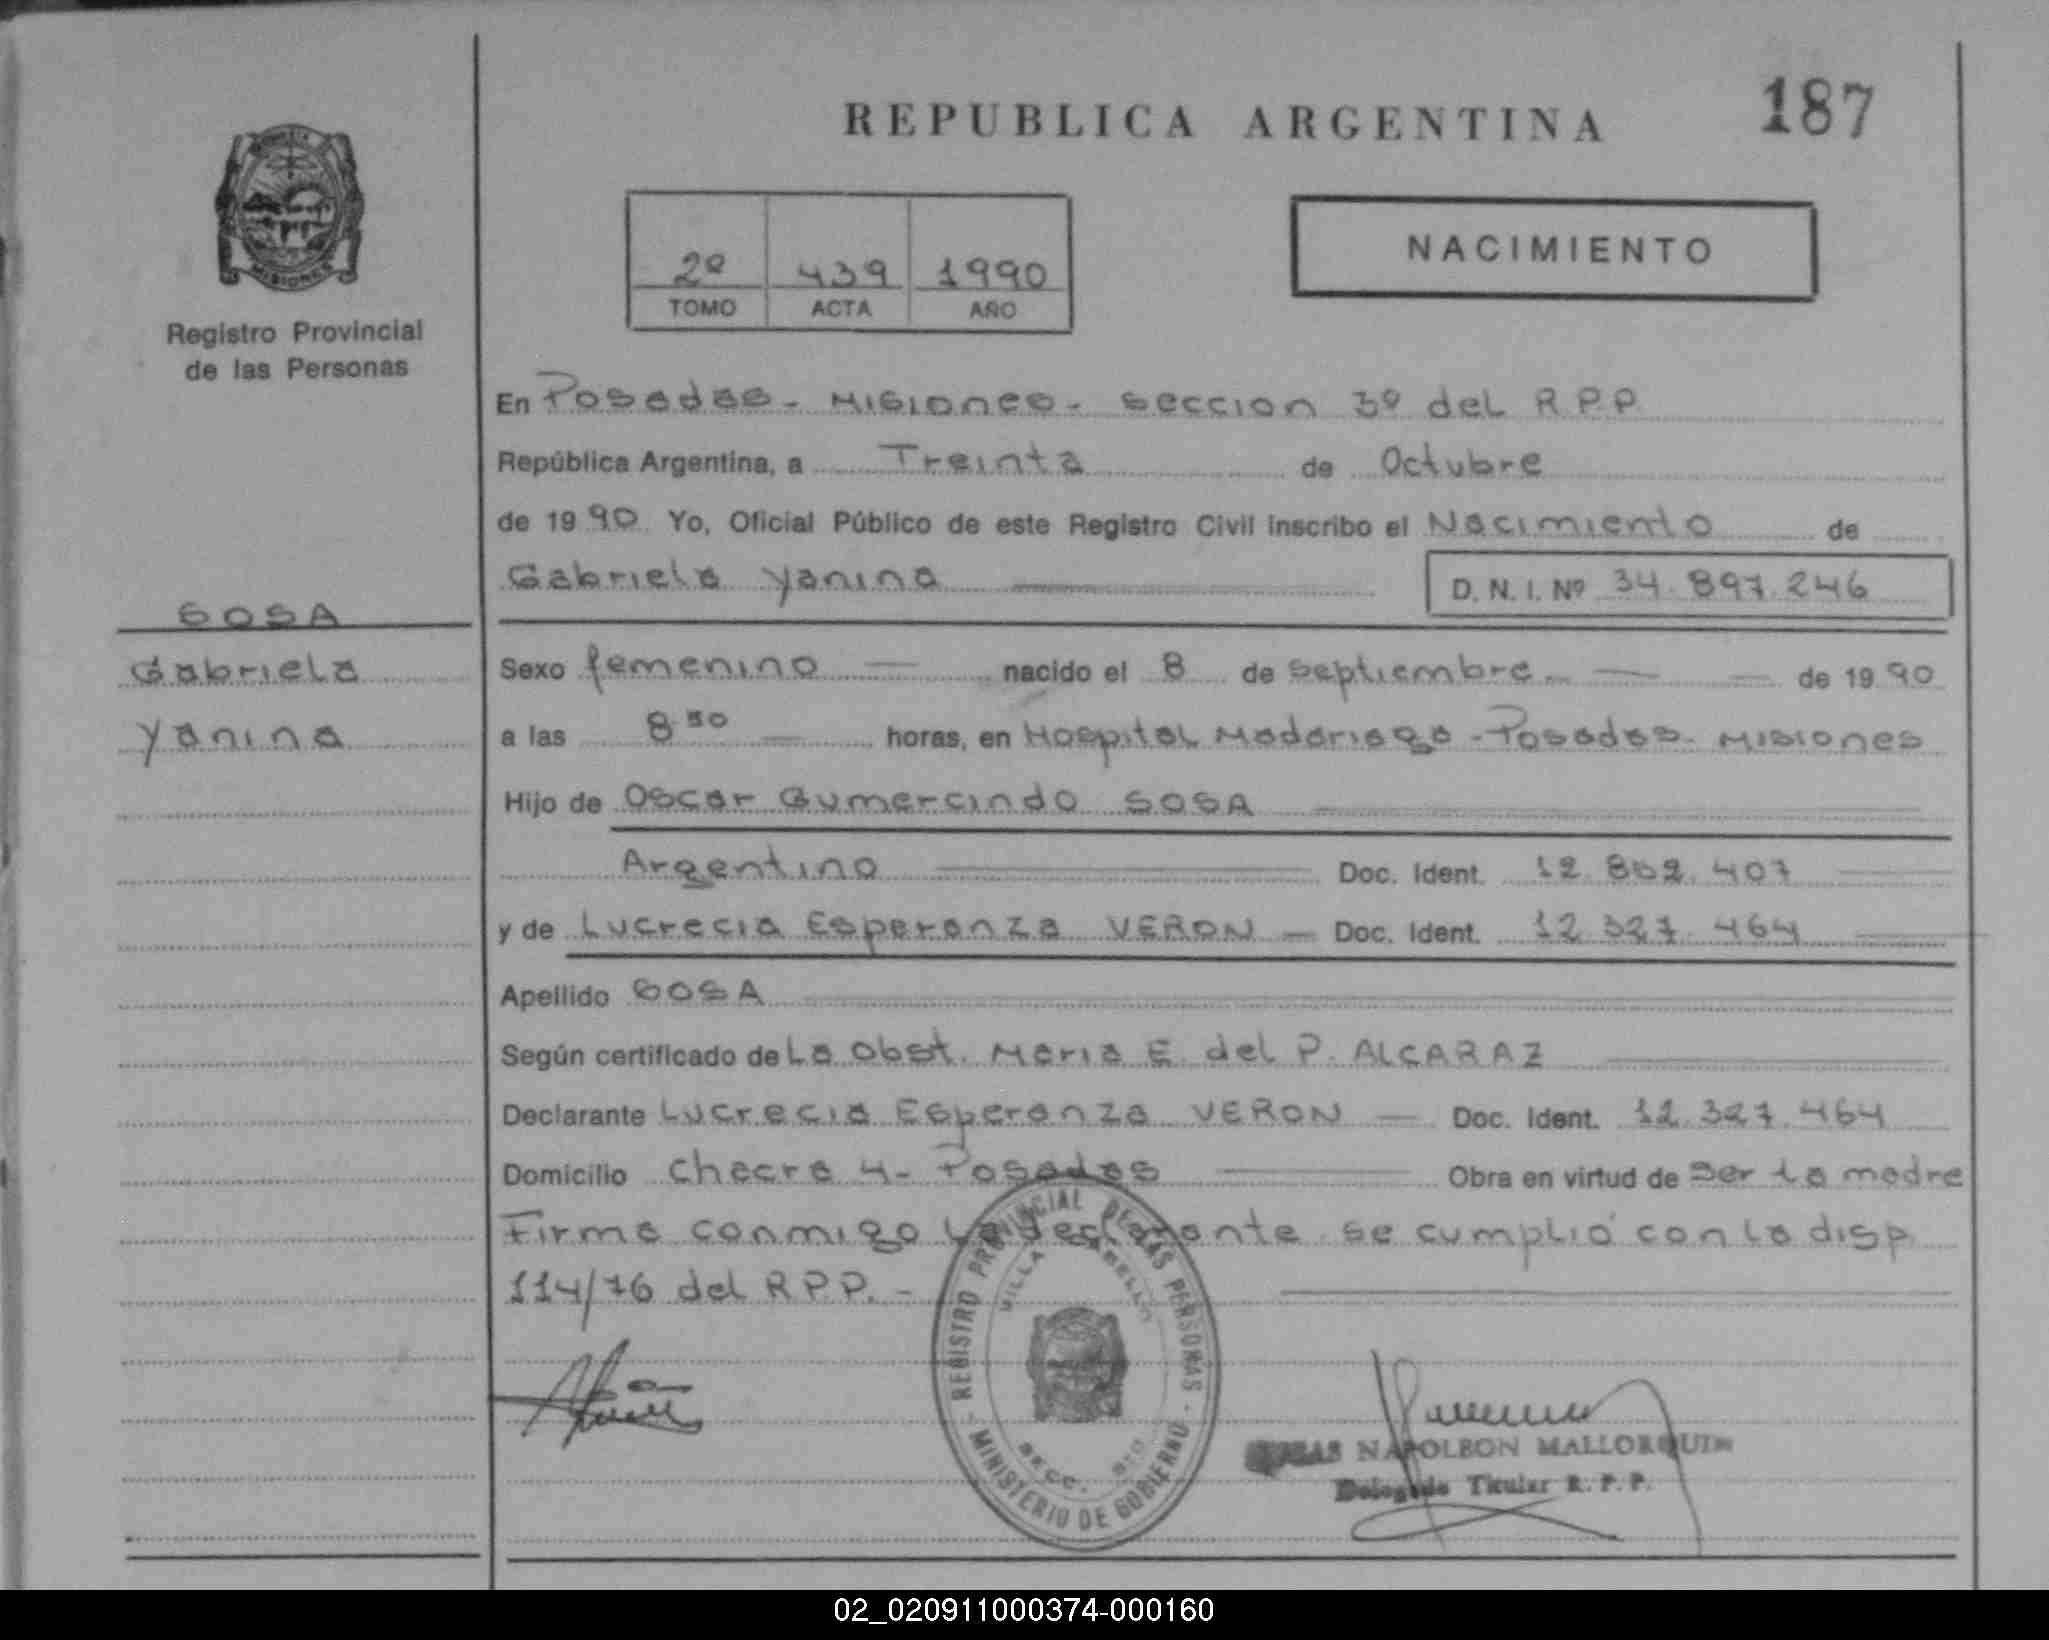 REPUBLICA ARGENTINA
187
MISIONES
Registro Provincial
de las Personas
2º 439 1990
TOMO ACTA AÑO
NACIMIENTO
En Posadas - Misiones - seccion 3º del R.P.P
República Argentina, a Treinta de Octubre
de 19 90 Yo, Oficial Público de este Registro Civil inscribo el Nacimiento de
Gabriela Yanina
D. N. I. Nº 34.897.246
SOSA
Gabriela
Yanina
Sexo femenino nacido el 8 de septiembre de 19 90
a las 8 horas, en Hospital Madariaga - Posadas - Misiones
Hijo de Oscar Gumercindo SOSA
Argentino Doc. Ident. 12.802.407
y de Lucrecia Esperanza VERON - Doc. Ident. 12.327.464
Apellido SOSA
Según certificado de La Obst. Maria E. del P. ALCARAZ
Declarante Lucrecia Esperanza VERON - Doc. Ident. 12.327.464
Domicilio Chacra 4 - Posadas Obra en virtud de ser la madre
Firma conmigo la declarante se cumplió con la disp
114/76 del R.P.P. -
REGISTRO PROVINCIAL DE LAS PERSONAS
VILLA CABELLO
SECC. 3ro
MINISTERIO DE GOBIERNO
NAPOLEON MALLORQUIN
Delegado Titular R. P. P.
02_020911000374-000160